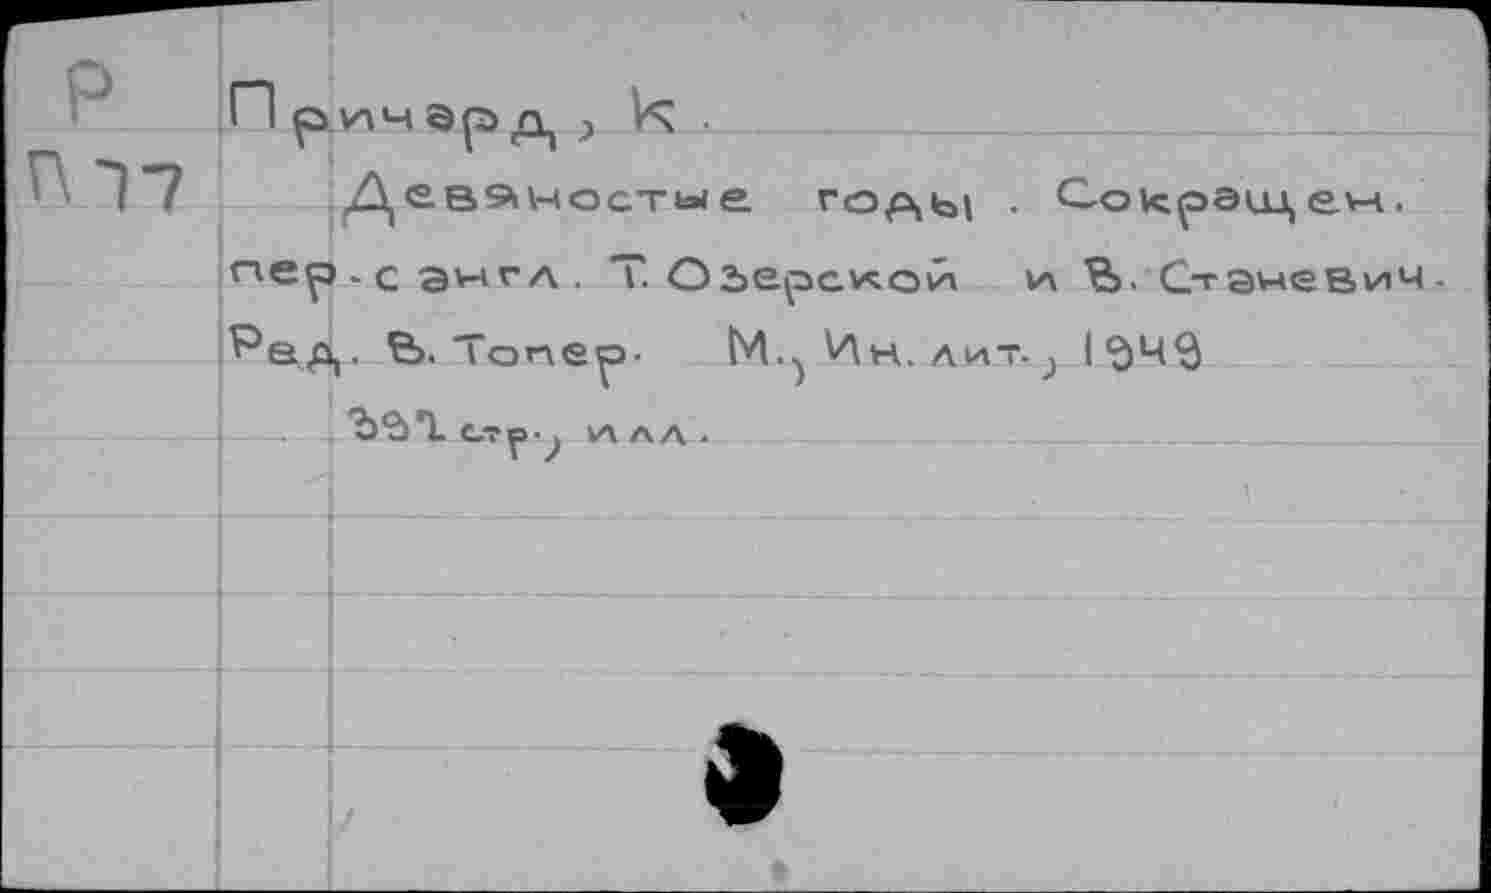 Р
П 77
Причард, К.
Девяностые годы. Сокращен.
пер. с англ. Т. Озерской и В. Станевич.
Ред. В. Топер. М., Ин. лит., 1949
стр., илл.